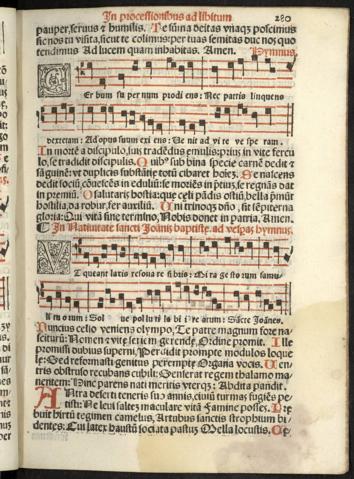 In processionibus ad libitum 280
pauper, seruus & humilis. Te trina deitas vnaq3 poscimus
sic nos tu visita, sicut te colimus: per tuas semitas duc nos quo
tendimus Ad lucem quam inhabitas. Amen. Hymnus.
Er bum su per num prodi ens: Nec patris linquens
dexteram: Ad opus suum exi ens: Ve nit ad vi te ve spe ram.
In mortē a discipulo, suis tradēdus emulis: prius in vite fercu
lo, se tradidit discipulis. Quib' sub bina specie carnē dedit &
sāguinē: vt duplicis substātie totū cibaret hoīez. Se nascens
dedit sociū, conuescēs in edulium: se moriēs in prium, se regnās dat
in premiū. O salutaris hostia: que celi pādis ostiū, bella pmūt
hostilia, da robur, fer auxiliū. Uni trinoq3 dño, sit sēpiterna
gloria: Qui vitā sine termino, Nobis donet in patria. Amen.
In Natiuitate sancti Joānis baptiste. ad vesp̄as hymnus.
T queant laxis resona re fibris: Mi ra ge sto rum famu-
li tu o rum: Sol ue pol lu ti la bi i re atum: Sācte Joānes.
Nuncius celso veniens olympo, Te patre magnum fore na-
sciturū: Nomen & vite seriem gerende, Ordine promit. Ille
promissi dubius superni, Perdidit prompte modulos loque
le: Sed reformasti genitus perempte Organa vocis. Uen-
tris obstruso recubans cubili: Senseras regem thalamo ma
nentem: Hinc parens nati meritis vterq3: Abdita pandit.
Antra deserti teneris sub annis, ciuiū turmas fugiēs pe-
tisti: Ne leui saltez maculare vitā Famine posses. Pre
buit hirtū tegimen camelus, Artubus sanctis strophium bi-
dentes: Cui latex haustū, sociata pastus Mella locustis. Ce-